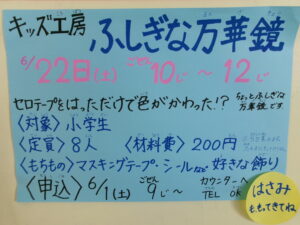 キッズ工房 ふしぎな万華鏡
6/22日(土) ごぜん10じ～12じ
セロテープをはっただけで色がかわった!? ちょっとふしぎな万華鏡です。
〈対象〉小学生
〈定員〉8人 〈材料費〉200円
〈もちもの〉マスキングテープ・シールなど好きな飾り
〈申込〉6/1(土) ごぜん9じ～ カウンターへ TEL OK
はさみ
ももってきてね